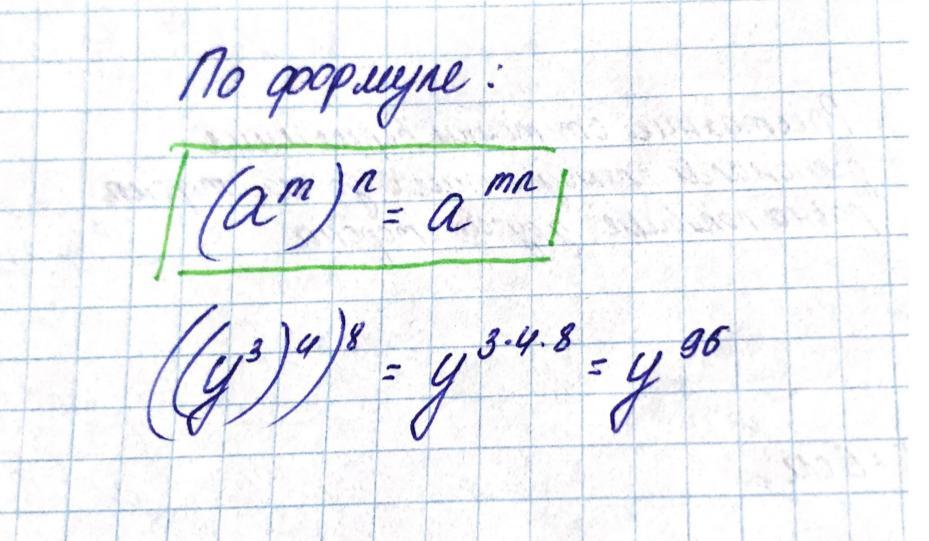 По формуле:
(a^m)^n = a^{mn}
((y^3)^4)^8 = y^{3·4·8} = y^{96}